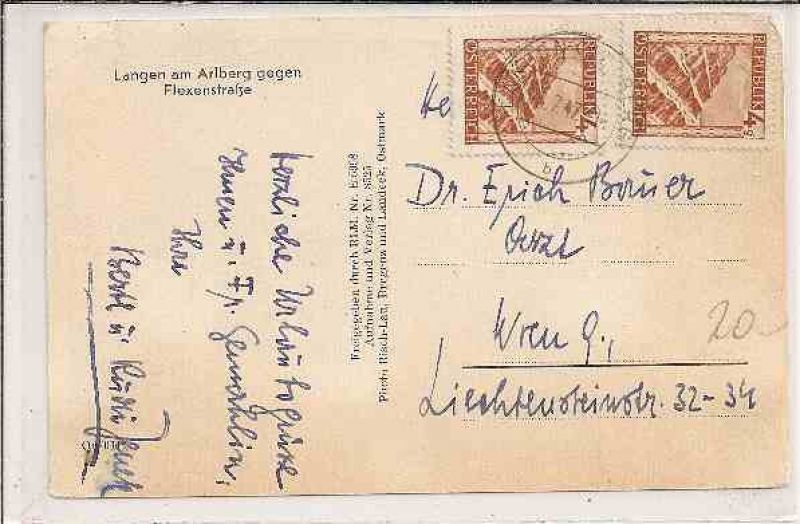 Langen am Arlberg gegen
Flexenstraße
Herzliche Urlaubsgrüsse
Ihnen u. Fr. Gemahlin,
Ihre
Bertl u. Rudi
Freigegeben durch RLM. Nr.
Aufnahme und Verlag Nr. 8525
Photo Risch-Lau, Bregenz und Landeck, Ostmark
REPUBLIK
ÖSTERREICH
4g
REPUBLIK
ÖSTERREICH
4g
Dr. Erich Bauer
Arzt
Wien 9.,
Liechtensteinstr. 32-34
20